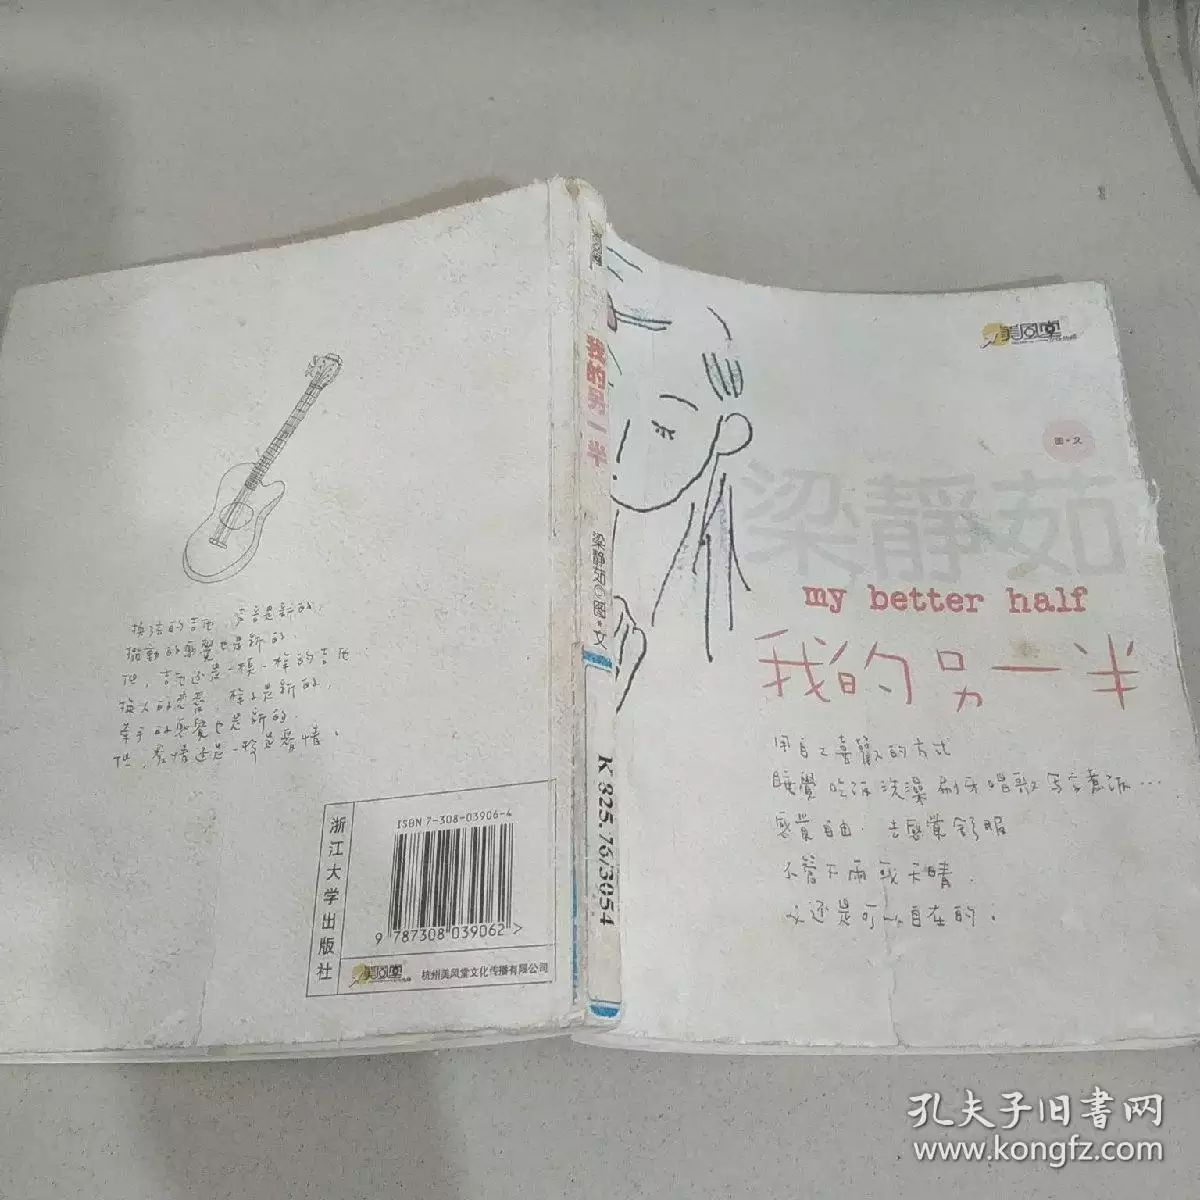 美风堂
图·文
梁靜茹
my better half
我的另一半
用自己喜歡的方式
睡覺 吃涼 洗澡 刷牙 唱歌 写
感覺自由. 去感覺舒服
不管下雨或天晴.
还是可以自在的。
美风堂
我的另一半
梁静茹◎图·文
K 825.76/3054
换活的吉他, 声音是新的,
撥動的感覺也是新的.
但, 吉他还是一模一样的吉他
换人的恋爱, 样子是新的,
牽手的感覺也是新的.
但, 爱情还是一
ISBN 7-308-03906-4
9 787308 039062 >
浙江大学出版社
美风堂
杭州美风堂文化传播有限公司
孔夫子旧书网
www.kongfz.com